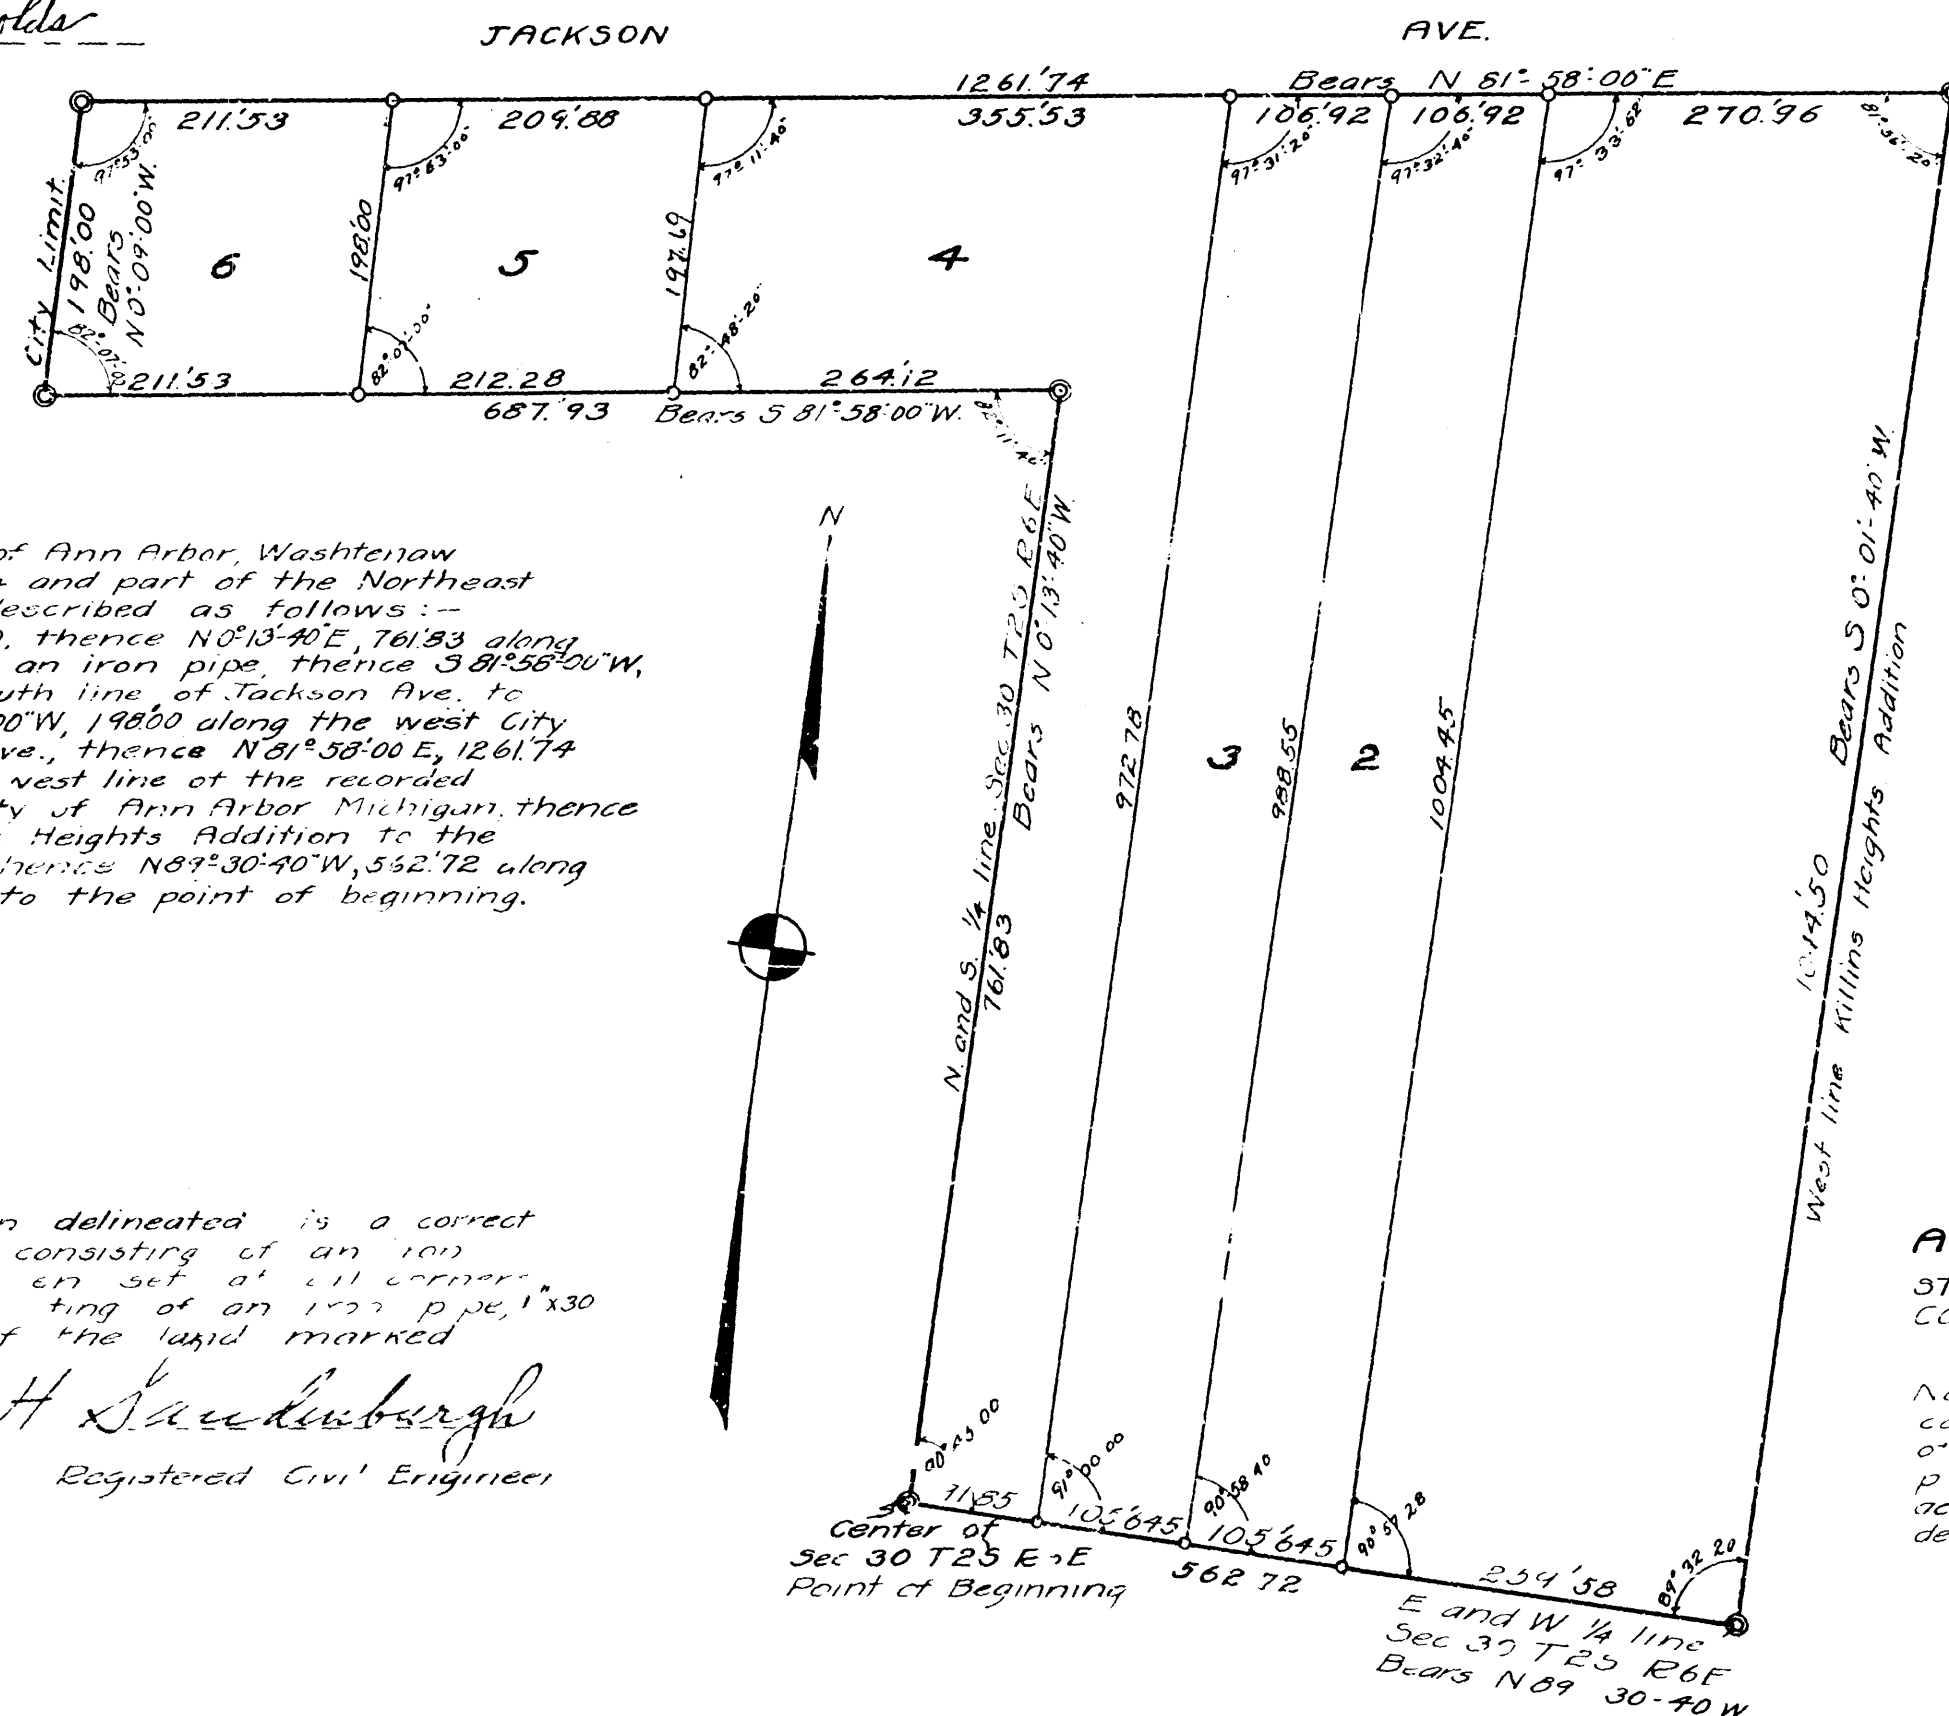 JACKSON AVE.
1261.'74 Bears N 81°-58'-00"E
211.'53 209.'88 355.'53 106.'92 106.'92 270.'96
97°-53'-00" 97°-11'-40" 97°-31'-20" 97°-32'-40" 81°-56'-20"
City Limit
198.'00
Bears
N 0°-09'-00"W.
198.'00
197.69
6 5 4
82°-07'-00" 82°-48'-20"
211.'53 212.28 264.'12
687.'93 Bears S 81°-58'-00"W.
N
of Ann Arbor, Washtenaw
and part of the Northeast
described as follows:-
thence N0°-13'-40"E, 761.'83 along
an iron pipe, thence S 81°-58'-00"W,
south line of Jackson Ave. to
00"W, 198.'00 along the west City
Ave., thence N 81°-58'-00 E, 1261.'74
west line of the recorded
of Ann Arbor Michigan, thence
Heights Addition to the
thence N89°-30'-40"W, 562.'72 along
to the point of beginning.
N. and S. 1/4 line Sec. 30 T2S R6E
761.'83 Bears N 0°-13'-40"W
972.78
3
988.55
2
1004.45
1014.50 Bears S 0°-01'-40"W.
West line Killins Heights Addition
delineated is a correct
consisting of an iron
set at all corners
of an iron pipe, 1"x30
the land marked
H
Registered Civil Engineer
91° 00 00 90° 58 40 90° 57 28 89° 32 20
71.85 105.'645 105.'645
562 72
Center of
Sec 30 T2S
Point of Beginning
E and W 1/4 line
Sec 30 T2S R6E
Bears N 89 30-40 W